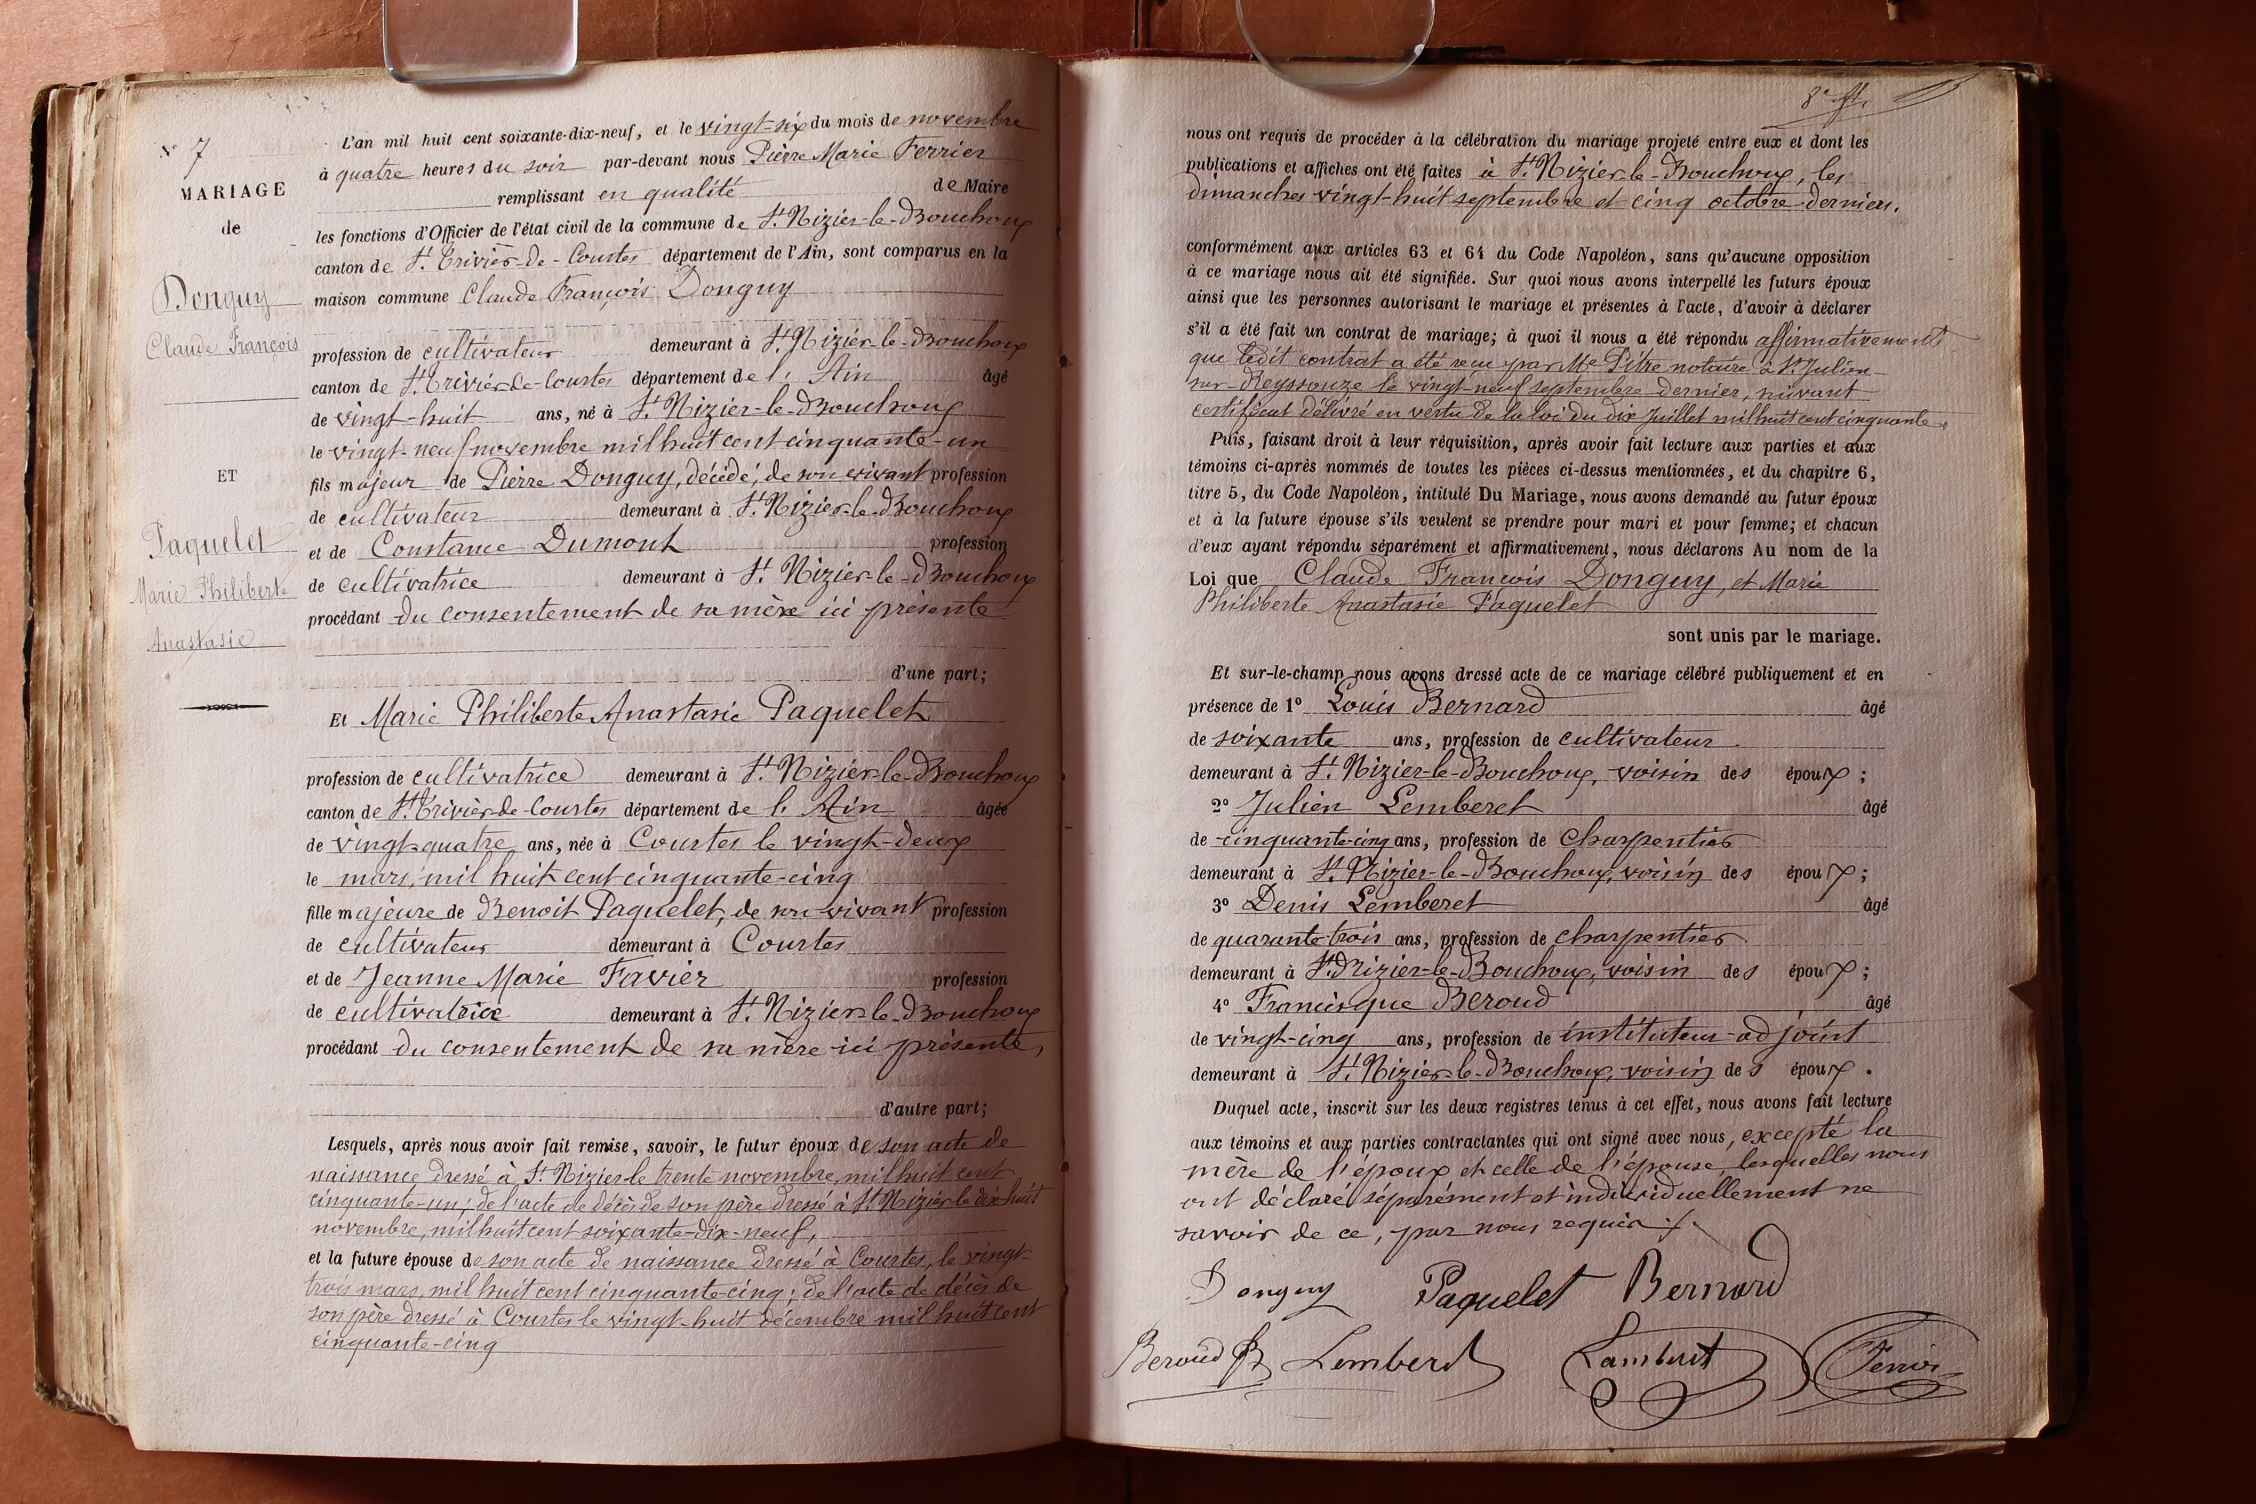 N° 7
MARIAGE
de
Donguy
Claude François
ET
Paquelet
Marie Philiberte
Anastasie
L'an mil huit cent soixante-dix-neuf, et le vingt-six du mois de novembre
à quatre heures du soir par-devant nous Pierre Marie Ferrier
remplissant en qualité de Maire
les fonctions d'Officier de l'état civil de la commune de St Nizier-le-Bouchoux
canton de St. Trivier-de-Courtes département de l'Ain, sont comparus en la
maison commune Claude François Donguy
profession de cultivateur demeurant à St Nizier-le-Bouchoux
canton de St Trivier-de-Courtes département de l'Ain âgé
de vingt-huit ans, né à St Nizier-le-Bouchoux
le vingt-neuf novembre mil huit cent cinquante-un
fils majeur de Pierre Donguy, décédé, de son vivant profession
de cultivateur demeurant à St Nizier-le-Bouchoux
et de Constance Dumont profession
de cultivatrice demeurant à St. Nizier-le-Bouchoux
procédant du consentement de sa mère ici présente
d'une part;
Et Marie Philiberte Anastasie Paquelet
profession de cultivatrice demeurant à St. Nizier-le-Bouchoux
canton de St. Trivier-de-Courtes département de l'Ain âgée
de vingt-quatre ans, née à Courtes le vingt-deux
le mars, mil huit cent cinquante-cinq
fille majeure de Benoit Paquelet, de son vivant profession
de cultivateur demeurant à Courtes
et de Jeanne Marie Favier profession
de cultivatrice demeurant à St. Nizier-le-Bouchoux
procédant du consentement de sa mère ici présente,
d'autre part;
Lesquels, après nous avoir fait remise, savoir, le futur époux de son acte de
naissance dressé à St Nizier le trente novembre, mil huit cent
cinquante-un; de l'acte de décès de son père dressé à St Nizier le dix-huit
novembre, mil huit cent soixante-dix-neuf,
et la future épouse de son acte de naissance dressé à Courtes, le vingt-
trois mars, mil huit cent cinquante-cinq; de l'acte de décès de
son père dressé à Courtes le vingt-huit décembre mil huit cent
cinquante-cinq
nous ont requis de procéder à la célébration du mariage projeté entre eux et dont les
publications et affiches ont été faites à St Nizier-le-Bouchoux, les
dimanches vingt-huit septembre et cinq octobre dernier.
conformément aux articles 63 et 64 du Code Napoléon, sans qu'aucune opposition
à ce mariage nous ait été signifiée. Sur quoi nous avons interpellé les futurs époux
ainsi que les personnes autorisant le mariage et présentes à l'acte, d'avoir à déclarer
s'il a été fait un contrat de mariage; à quoi il nous a été répondu affirmativement
que ledit contrat a été reçu par Me Pitre notaire à St Julien-
sur-Reyssouze le vingt-neuf septembre dernier, suivant
certificat délivré en vertu de la loi du dix Juillet mil huit cent cinquante.
Puis, faisant droit à leur réquisition, après avoir fait lecture aux parties et aux
témoins ci-après nommés de toutes les pièces ci-dessus mentionnées, et du chapitre 6,
titre 5, du Code Napoléon, intitulé Du Mariage, nous avons demandé au futur époux
et à la future épouse s'ils veulent se prendre pour mari et pour femme; et chacun
d'eux ayant répondu séparément et affirmativement, nous déclarons Au nom de la
Loi que Claude François Donguy, et Marie
Philiberte Anastasie Paquelet
sont unis par le mariage.
Et sur-le-champ nous avons dressé acte de ce mariage célébré publiquement et en
présence de 1° Louis Bernard âgé
de soixante ans, profession de cultivateur
demeurant à St. Nizier-le-Bouchoux, voisin des époux;
2° Julien Lemberet âgé
de cinquante-cinq ans, profession de charpentier
demeurant à St. Nizier-le-Bouchoux, voisin des époux;
3° Denis Lemberet âgé
de quarante-trois ans, profession de charpentier
demeurant à St. Nizier-le-Bouchoux, voisin des époux;
4° Francisque Beroud âgé
de vingt-cinq ans, profession de instituteur-adjoint
demeurant à St. Nizier-le-Bouchoux, voisin des époux.
Duquel acte, inscrit sur les deux registres tenus à cet effet, nous avons fait lecture
aux témoins et aux parties contractantes qui ont signé avec nous, excepté la
mère de l'époux et celle de l'épouse, lesquelles nous
ont déclaré séparément et individuellement ne
savoir de ce, par nous requis
Donguy Paquelet Bernard
Beroud Lemberet Lambret Ferrier